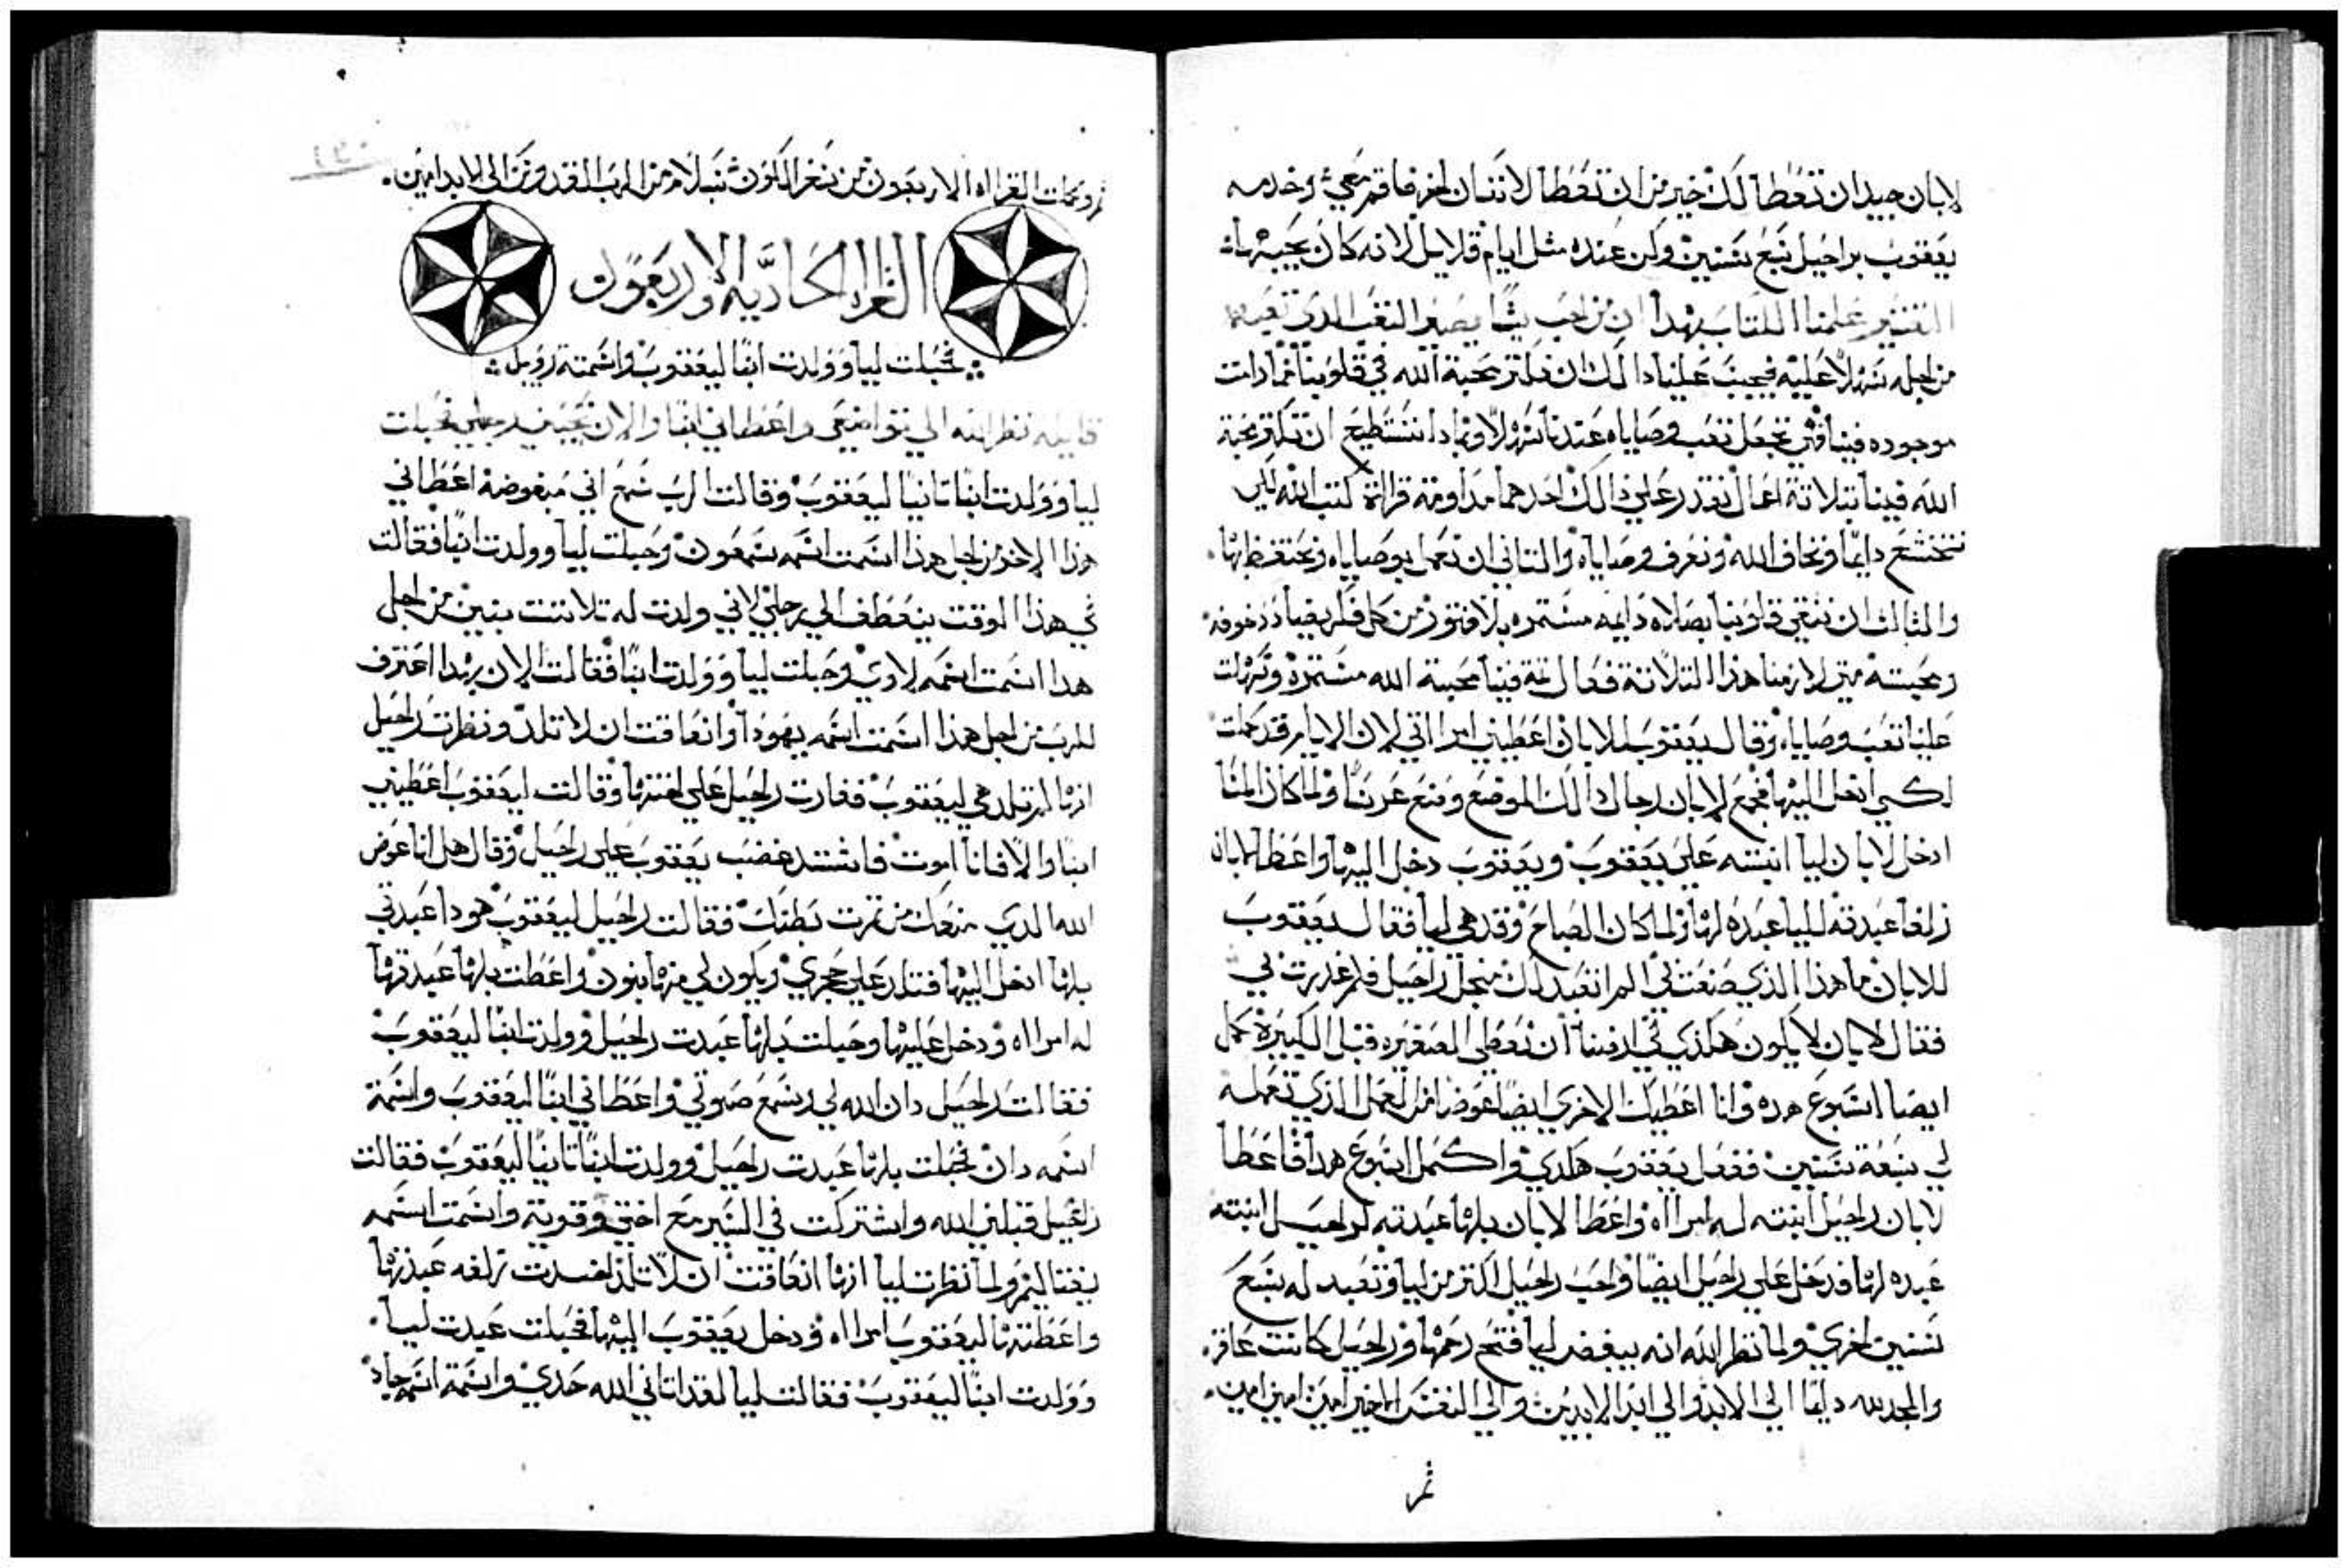 لابان جيد ان تعطا لك خير من ان تعطا لانسان اخر فاقم معي وخدمه
يعقوب براحيل سبع سنين وكن عنده مثل ايام قلايل لانه كان يحبها
التفسير علمنا الكتاب بهدا ان من احب شيا يصير التعب الدي تعبه
من اجله سهلا عليه فيجب علينا دالك ان نكتر محبة الله في قلوبنا فما دامت
موجوده فينا فهي تجعل تعب وصاياه عندنا سهلا وبمادا نستطيع ان تكتر محبة
الله فينا بتلاتة اعمال نقدر علي دالك احدهما مداومة قراة كتب الله لكي
نتخشع دايما ونخاف الله ونعرف وصاياه والتاني ان نعمل بوصاياه ونحتفظ بها
والتالت ان ننقي قلوبنا بصلاه دايمه مستمره بلا فتور من كل فكر يضاد خوفه
ومحبته متي لازمنا هذا التلاتة فعال تمة فينا محبة الله مستمره وسهلت
علينا تعب وصاياه وقال يعقوب للابان اعطيني امراتي لان الايام قد كملت
لكي ادخل اليها فجمع لابان رجال دالك الموضع وصنع عرسا ولما كان المسا
ادخل لابان ليا ابنته علي يعقوب ويعقوب دخل اليها واعطا لابان
زلفا عبدته لليا عبده لها ولما كان الصباح وقد هي ليا فقال يعقوب
للابان ما هذا الذي صنعت بي الم اتعبد لك من اجل راحيل فلم غدرت بي
فقال لابان لا يكون هكذي في ارضنا ان نعطي الصغيره قبل الكبيرة كمل
ايضا اسبوع هده وانا اعطيك الاخري ايضا عوضا من العمل الذي تعمله
لي سبعة سنين ففعل يعقوب هكدي واكمل اسبوع هدا فاعطا
لابان راحيل ابنته له امراه واعطا لابان بلها عبدته لراحيل ابنته
عبده لها فدخل علي راحيل ايضا واحب راحيل اكتر من ليا وتعبد له سبع
سنين اخري ولما نظر الله انه يبغض ليا فتح رحمها وراحيل كانت عاقره
والمجد لله دايما الي الابد والي ابد الابدين والي النفس الاخير امين امين امين
ثم
١٣٠
تم وكملت القراه الاربعون من سفر التكوين بسلام من الرب القدوس الي الابد امين
القراه الحاديه والاربعون
فحبلت ليا وولدت ابنا ليعقوب واسمته روبيل
قايله نظر الله الي تواضعي واعطاني ابنا والان يحبني رجلي فحبلت
ليا وولدت ابنا تانيا ليعقوب وقالت الرب سمع اني مبغوضة اعطاني
هذا الاخر من اجل هذا اسمت اسمه سمعون وحبلت ليا وولدت ابنا فقالت
في هذا الوقت ينعطف الي رجلي لاني ولدت له تلاتت بنين من اجل
هدا اسمت اسمه لاوي وحبلت ليا وولدت ابنا فقالت الان بهدا اعترف
للرب من اجل هدا اسمت اسمه يهودا وانعاقت ان لا تلد ونظرت راحيل
انها لم تلد هي ليعقوب فغارت راحيل علي اختها وقالت ليعقوب اعطيني
ابنا والا فانا اموت فاشتد غضب يعقوب علي راحيل وقال هل انا عوض
الله الدي منعك من تمرت بطنك فقالت راحيل ليعقوب هودا عبدتي
بلها ادخل اليها فتلد علي حجري ويكون لي منها بنون واعطت بلها عبدتها
له امراه ودخل عليها وحبلت بلها عبدت راحيل وولدت ابنا ليعقوب
فقالت راحيل دان الله لي وسمع صوتي واعطاني ابنا ليعقوب واسمة
اسمه دان فحبلت بلها عبدت راحيل وولدت ابنا تانيا ليعقوب فقالت
راحيل قبلني الله واشتركت في السير مع اختي وقويته واسمت اسمه
نفتاليم ولما نظرت ليا انها انعاقت ان لا تلد اخدت زلفه عبدتها
واعطتها ليعقوب امراه ودخل يعقوب اليها فحبلت عبدت ليا
وولدت ابنا ليعقوب فقالت ليا لقد اتاني الله حدي واسمة اسمه جاد